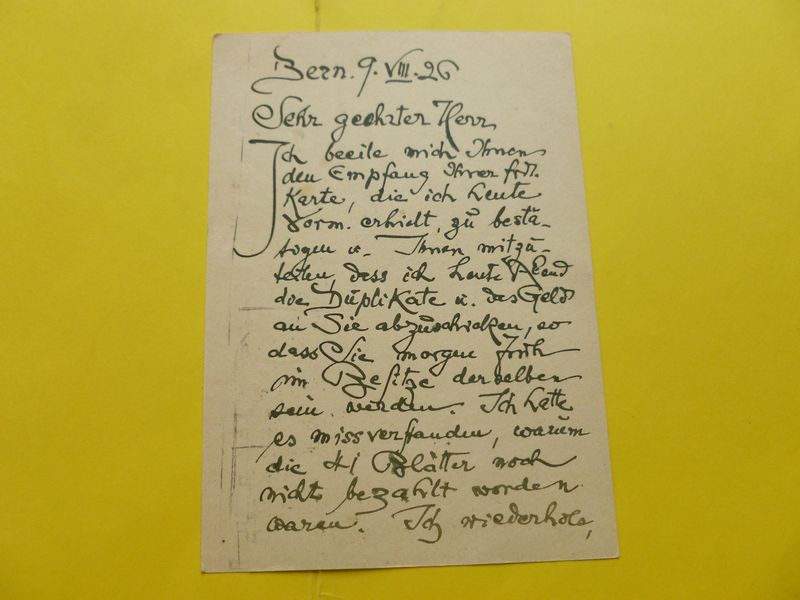 Bern. 9. VIII. 26
Sehr geehrter Herr
Ich beeile mich Ihnen
den Empfang Ihrer frdl.
Karte, die ich heute
Vorm. erhielt, zu bestä-
tigen u. Ihnen mitzu-
teilen, dass ich heute Abend
die Duplikate u. das Geld
an Sie abzuschicken, so
dass Sie morgen früh
im Besitze derselben
sein werden. Ich hatte
es missverstanden, warum
die 41 Blätter noch
nicht bezahlt worden
waren. Ich wiederhole,